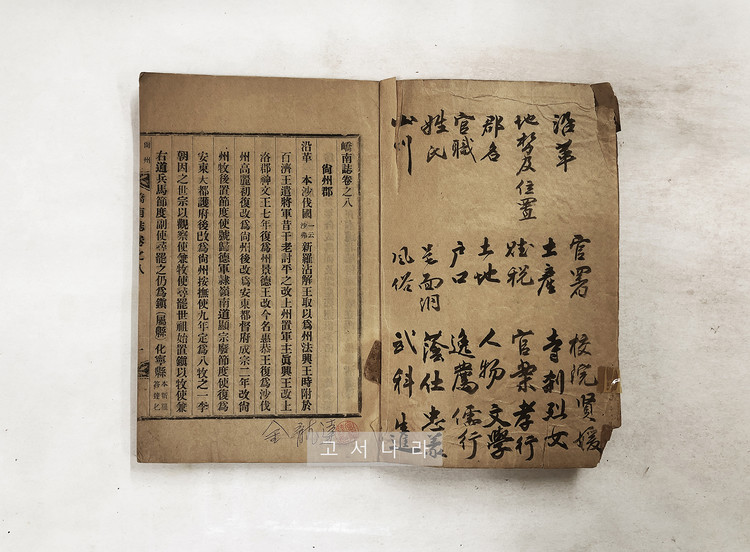 沿革 官署 校院賢媛
地勢及位置 土産 寺刹烈女
郡名 賦税 官案孝行
官職 土地 人物文學
姓氏 戶口 逸薦儒行
各面洞 蔭仕忠義
山川 風俗 武科生進
嶠南誌卷之八
尙州郡
沿革 本沙伐國一云沙弗新羅沾解王取以爲州法興王時附於
百濟王遣將軍昔于老討平之改上州置軍主眞興王改上
洛郡神文王七年復爲州景德王改今名惠恭王復爲沙伐
州高麗初復改爲尙州後改爲安東都督府成宗二年改尙
州牧後置節度使號歸德軍隷嶺南道顯宗廢節度使復爲
安東大都護府後改爲尙州按撫使九年定爲八牧之一李
朝因之世宗以觀察使兼牧使尋罷世祖始置鎭以牧使兼
右道兵馬節度副使尋罷之仍爲鎭(屬縣 化寧縣
尙州
嶠南誌卷之八
一
金
고서나라